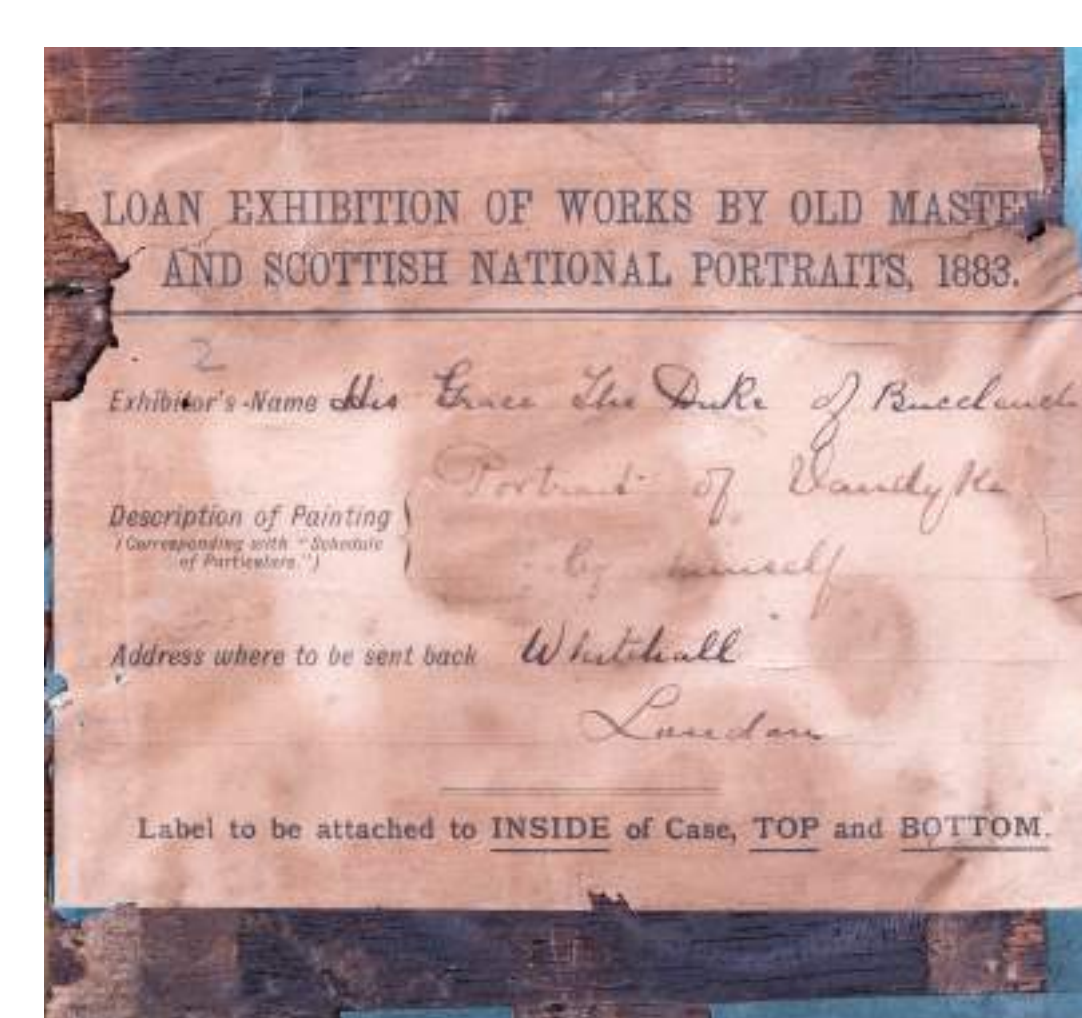 LOAN EXHIBITION OF WORKS BY OLD MASTE
AND SCOTTISH NATIONAL PORTRAITS, 1883.
2
Exhibitor's Name His Grace The Duke of Buccleuch
Portrait of Vandyke
Description of Painting
(Corresponding with "Schedule
of Particulars.")
by himself
Address where to be sent back Whitehall
London
Label to be attached to INSIDE of Case, TOP and BOTTOM.